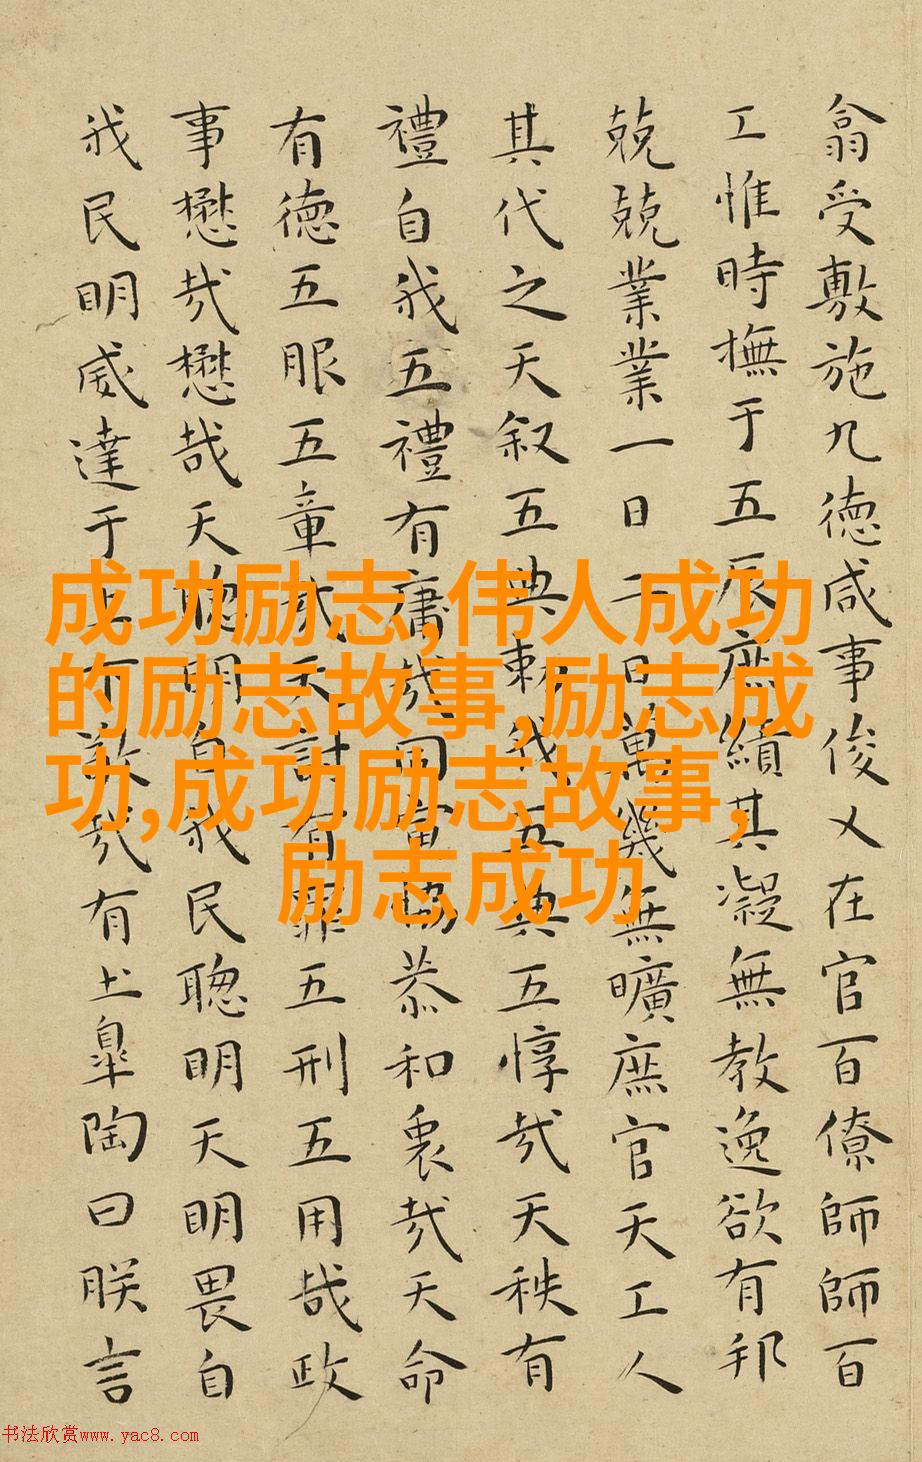 翕受敷施九德咸事俊乂在官百僚師師百
工惟時撫于五辰庶績其凝無教逸欲有邦
兢兢業業一日二日萬幾無曠庶官天工人
其代之天叙五典勑我五典五惇哉天秩有
禮自我五禮有庸哉同寅協恭和衷哉天命
有德五服五章哉天討有罪五刑五用哉政
事懋哉懋哉天聰明自我民聰明天明畏自
我民明威達于上下敬哉有土皋陶曰朕言
成功励志,伟人成功
的励志故事,励志成
功,成功励志故事,
励志成功
书法欣赏www.yac8.com